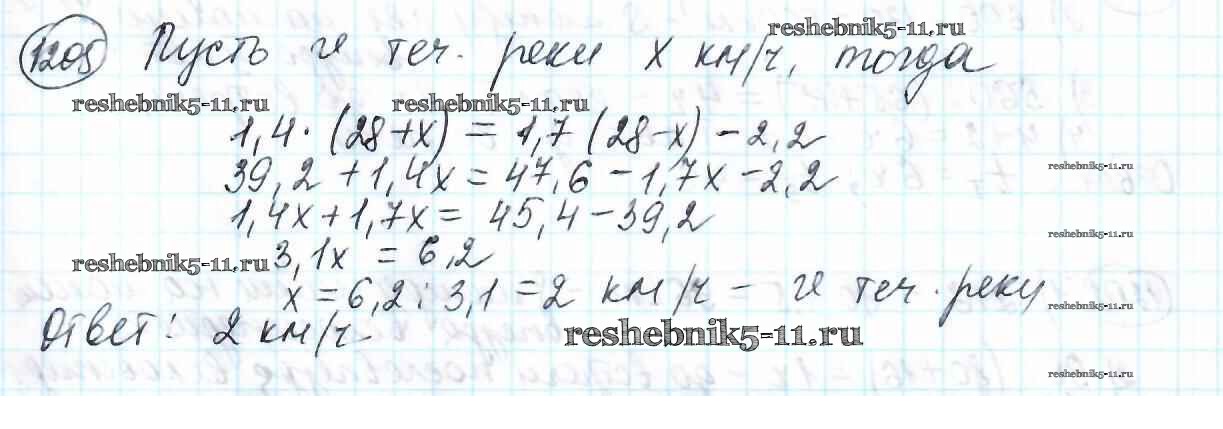 1205 Пусть υ теч. реки x км/ч, тогда
reshebnik5-11.ru
reshebnik5-11.ru reshebnik5-11.ru
1,4 · (28+x) = 1,7 (28-x) - 2,2
39,2 + 1,4x = 47,6 - 1,7x - 2,2
reshebnik5-11.ru
1,4x + 1,7x = 45,4 - 39,2
reshebnik5-11.ru
3,1x = 6,2
reshebnik5-11.ru
x = 6,2 : 3,1 = 2 км/ч - υ теч. реки
reshebnik5-11.ru
Ответ: 2 км/ч
reshebnik5-11.ru
reshebnik5-11.ru